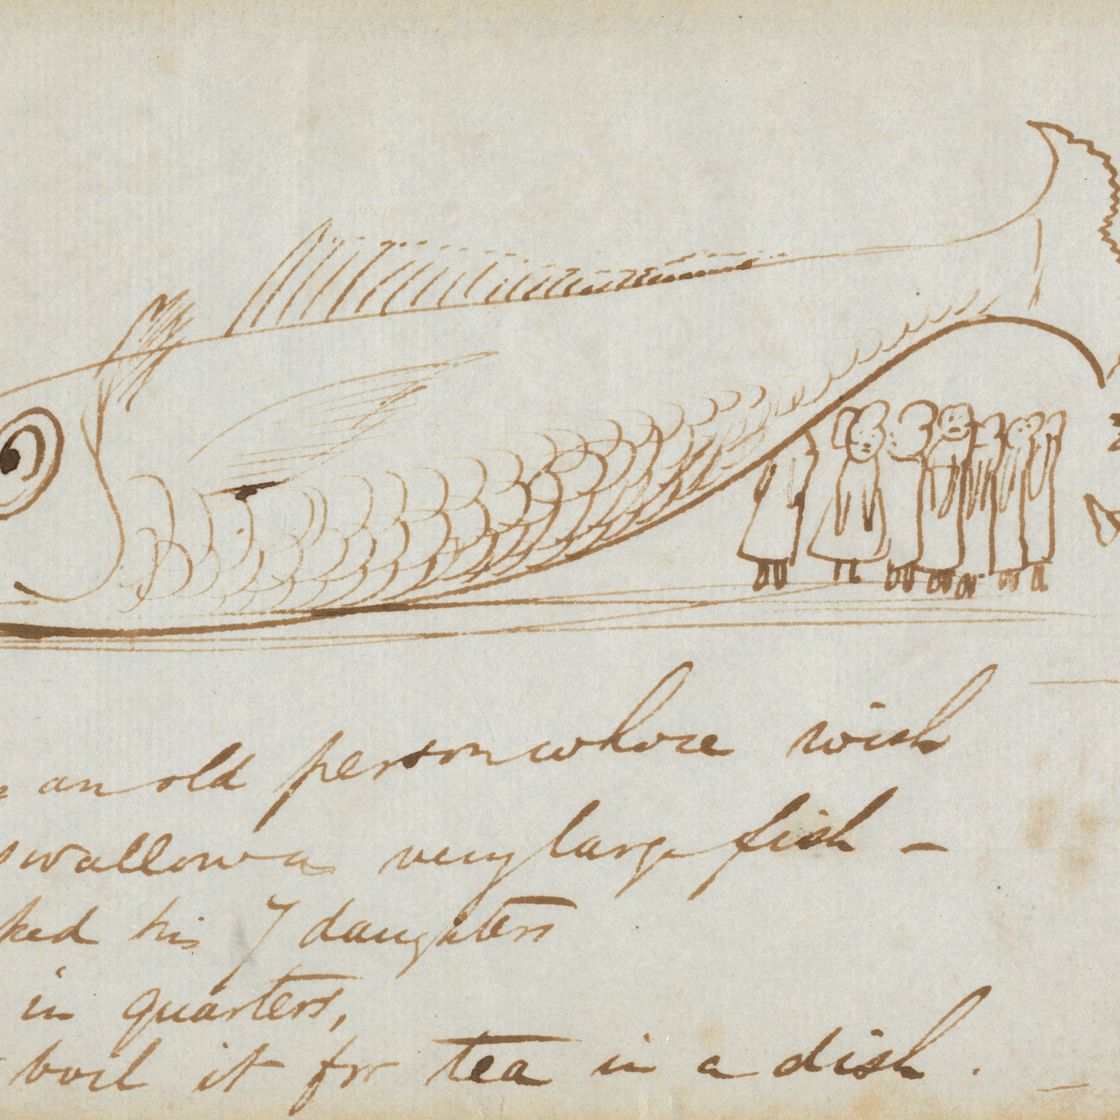 an old person whose wish
swallow a very large fish –
ked his 7 daughters
in quarters,
boil it for tea in a dish.